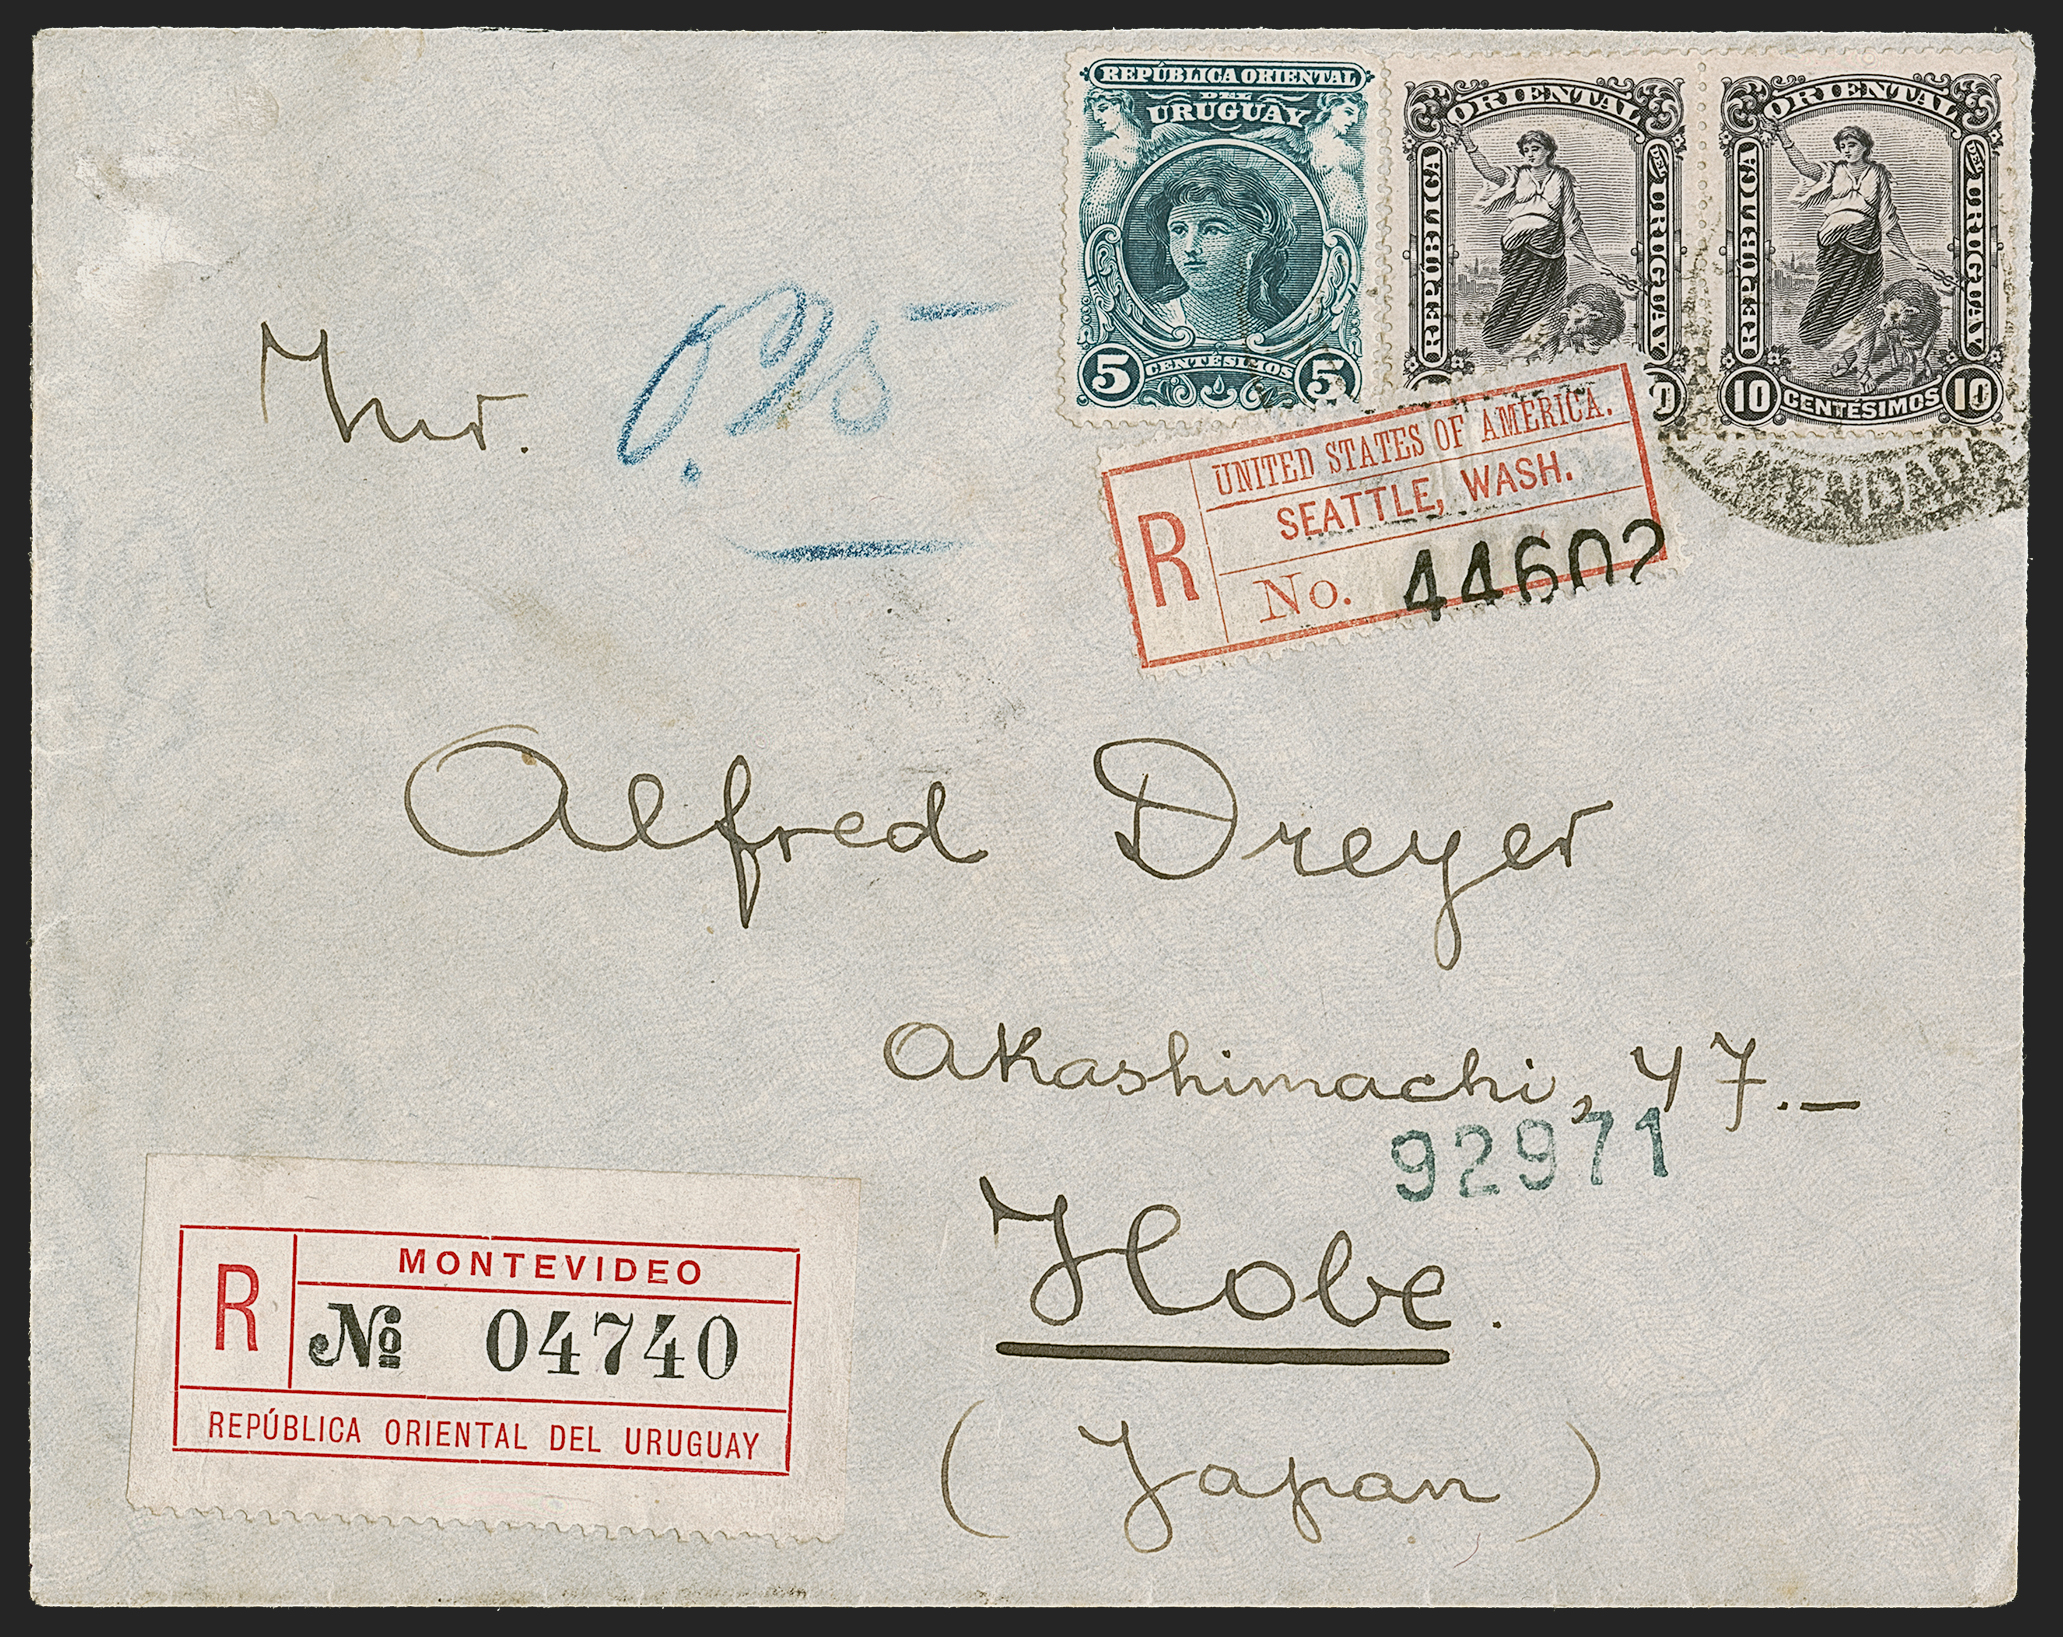 REPÚBLICA ORIENTAL
DEL
URUGUAY
5 CENTÉSIMOS 5
REPÚBLICA ORIENTAL DEL URUGUAY
REPÚBLICA ORIENTAL DEL URUGUAY
10 CENTÉSIMOS 10
Mr.
R
UNITED STATES OF AMERICA.
SEATTLE, WASH.
No. 44602
Alfred Dreyer
Akashimachi, 47.—
92971
Kobe.
(Japan)
R
MONTEVIDEO
№ 04740
REPÚBLICA ORIENTAL DEL URUGUAY